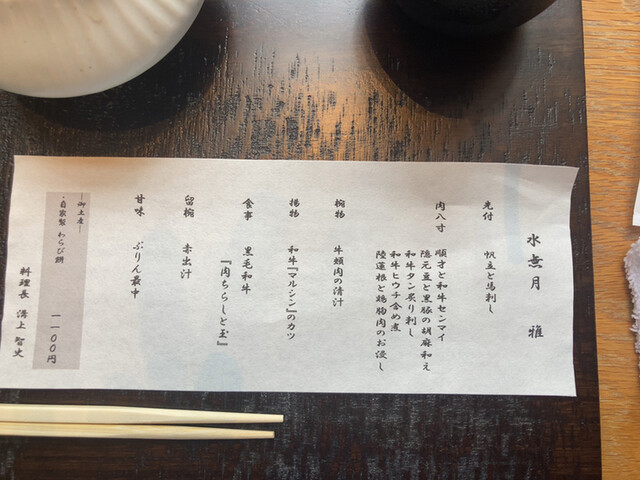 水無月 雅
先付 帆立と馬刺し
肉八寸 順才と和牛センマイ
隠元豆と黒豚の胡麻和え
和牛タン炙り刺し
和牛ヒウチ含め煮
陸蓮根と鶏胸肉のお浸し
椀物 牛頬肉の清汁
揚物 和牛『マルシン』のカツ
食事 黒毛和牛
『肉ちらしと玉』
留椀 赤出汁
甘味 ぷりん最中
―御土産―
・自家製 わらび餅 一一00円
料理長 溝上 智史